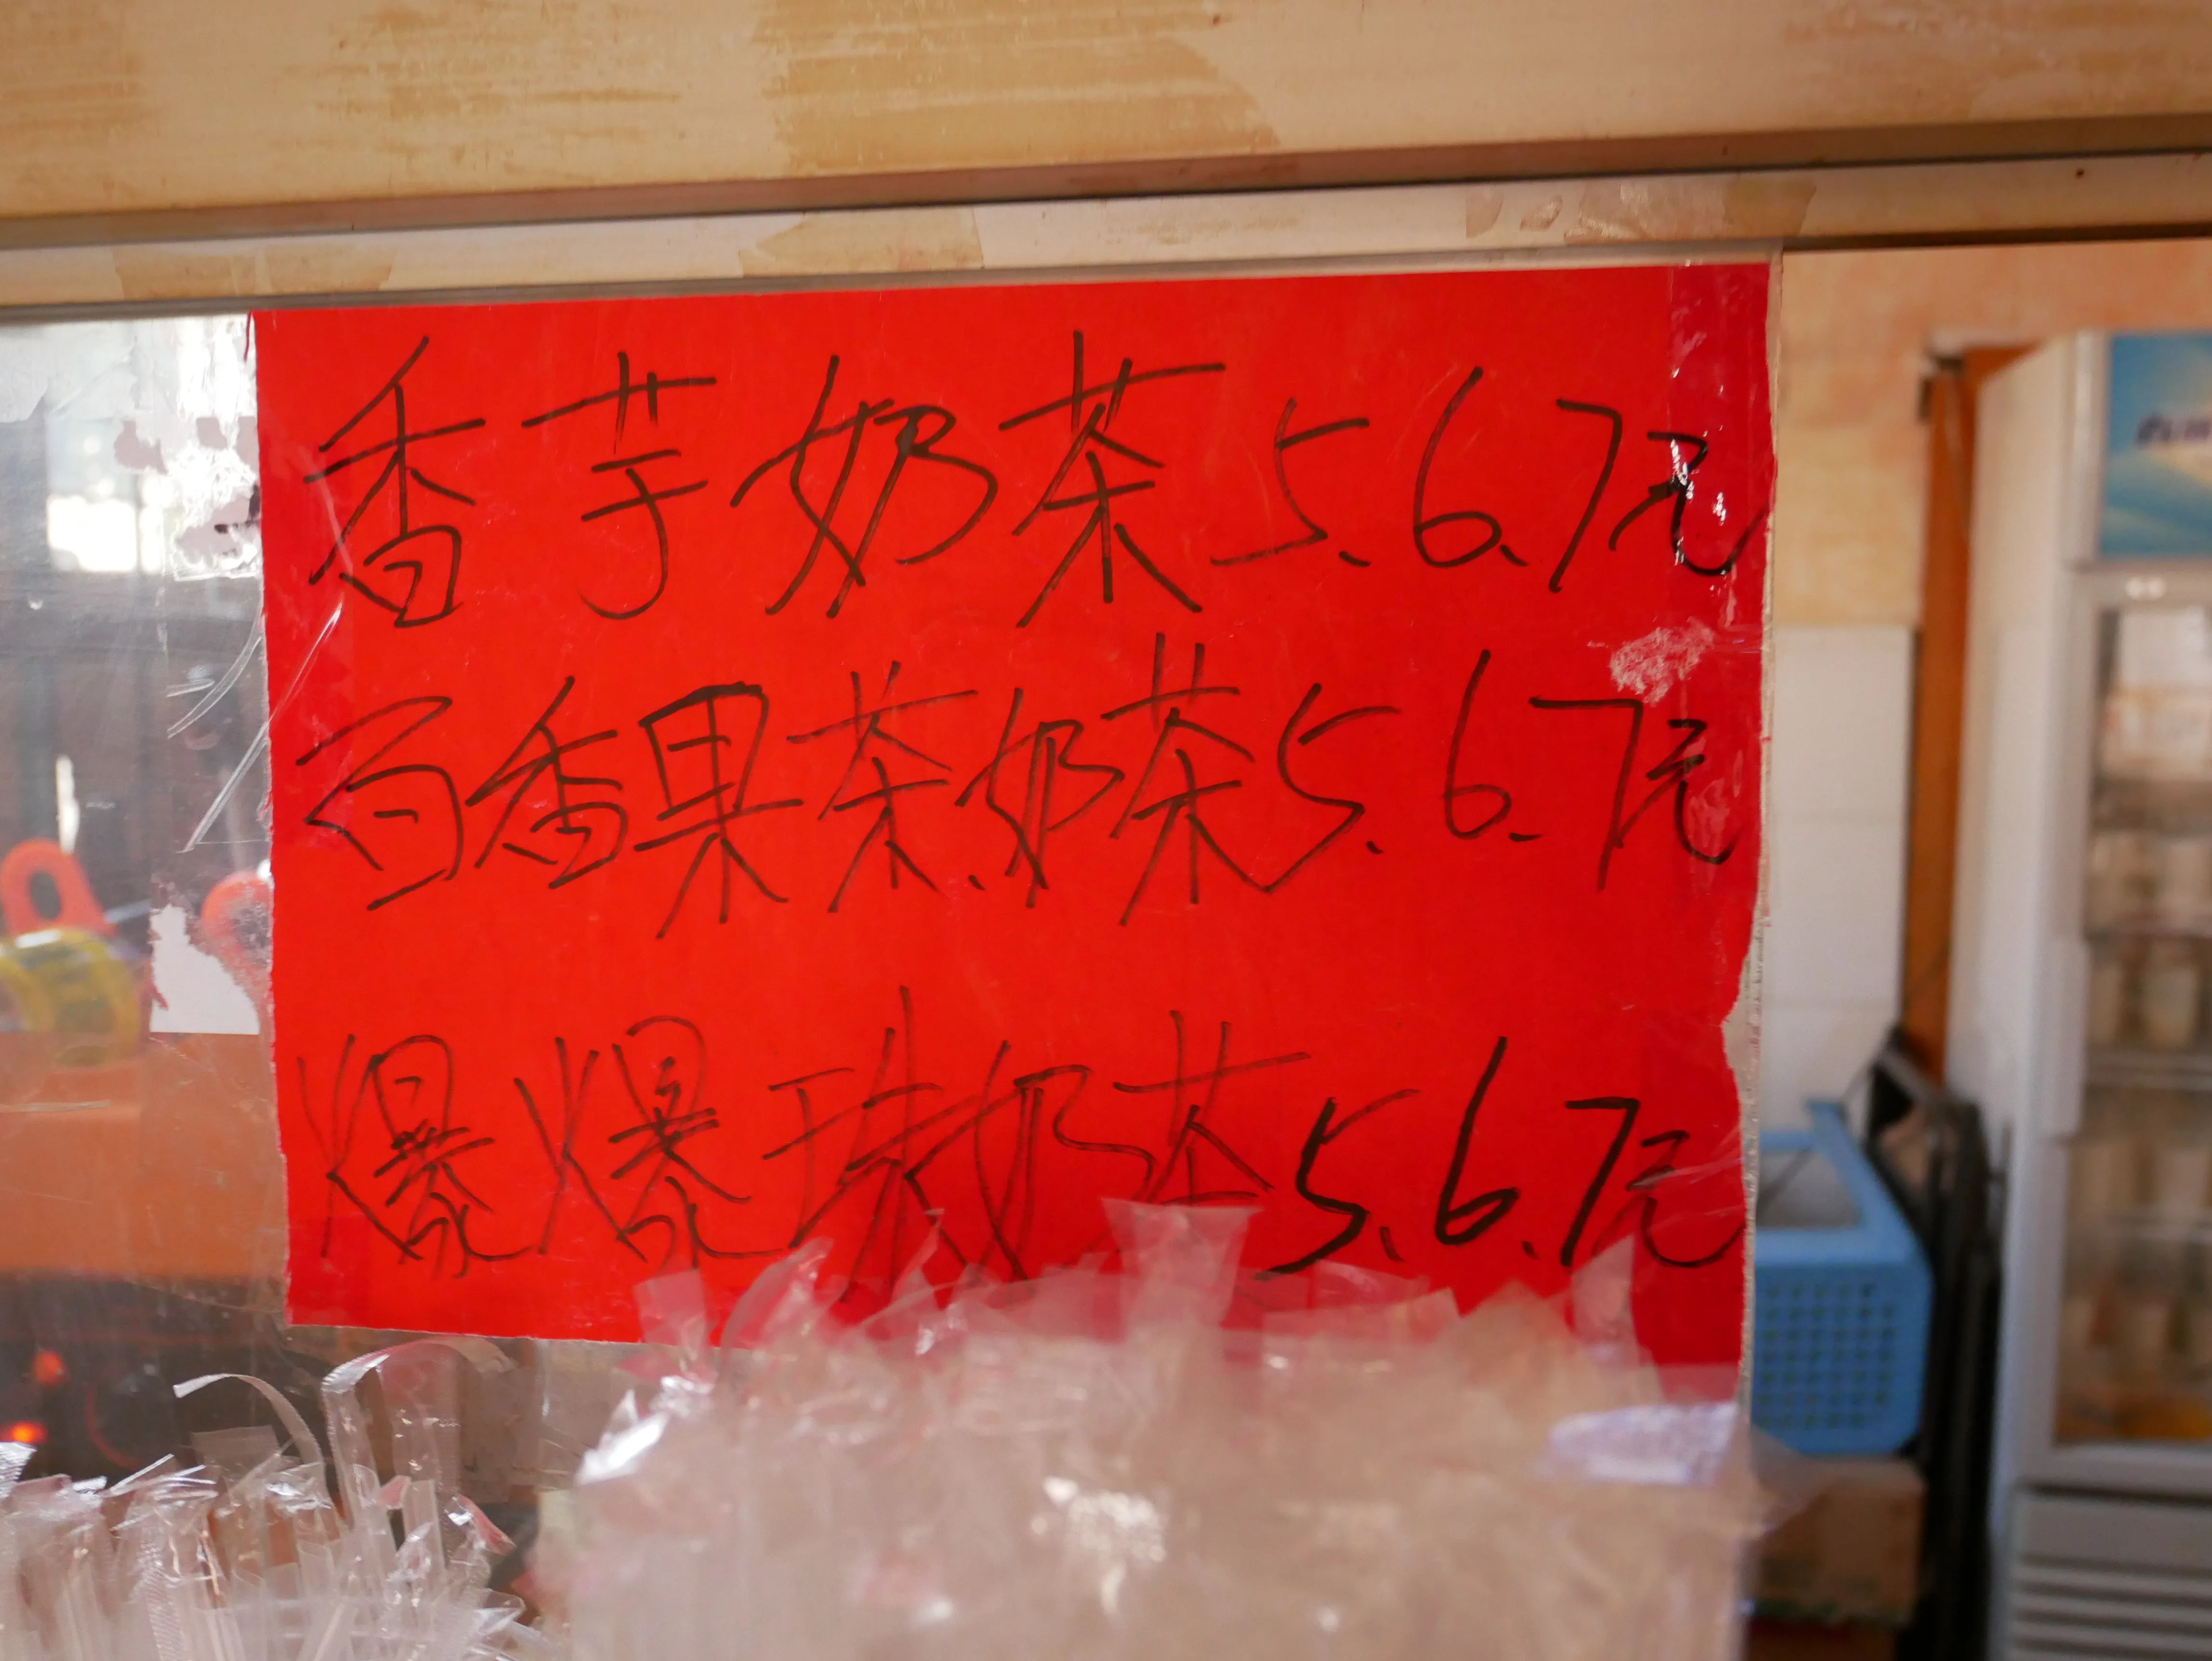 香芋奶茶5、6、7元
百香果茶、奶茶5、6、7元
爆爆珠奶茶5、6、7元